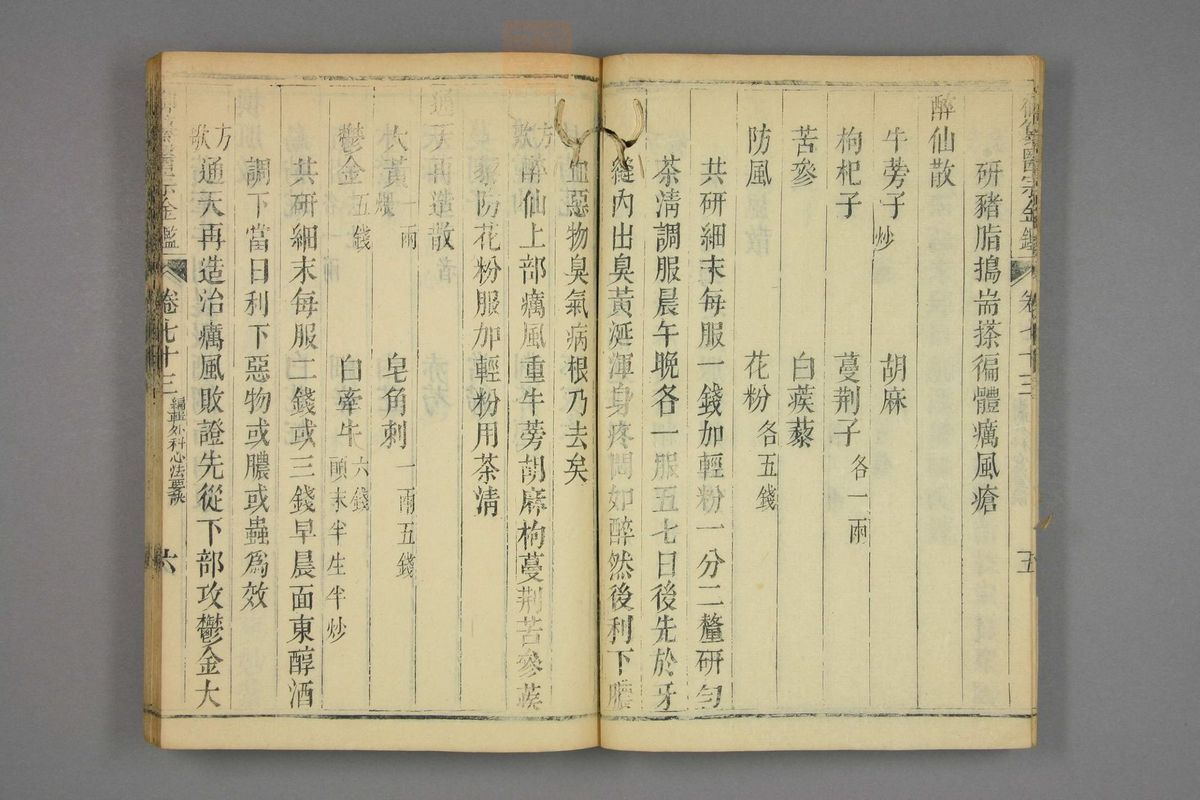 研豬脂搗崙搽徧體癘風瘡
醉仙散
牛蒡子炒 胡麻
枸杞子 蔓荆子各一兩
苦參 白蒺藜
防風 花粉各五錢
共研細末每服一錢加輕粉一分二釐研勻
茶清調服晨午晚各一服五七日後先於牙
縫內出臭黃涎渾身疼悶如醉然後利下膿
血惡物臭氣病根乃去矣
方歌 醉仙上部癘風重牛蒡胡麻枸蔓荆苦參蒺
藜防花粉服加輕粉用茶清
通天再造散
大黃煨一兩 皂角刺一兩五錢
鬱金五錢 白牽牛六錢頭末半生半炒
共研細末每服二錢或三錢早晨面東醇酒
調下當日利下惡物或膿或蟲為效
方歌 通天再造治癘風敗證先從下部攻鬱金大
御纂醫宗金鑑 卷七十三 編輯外科心法要訣 六